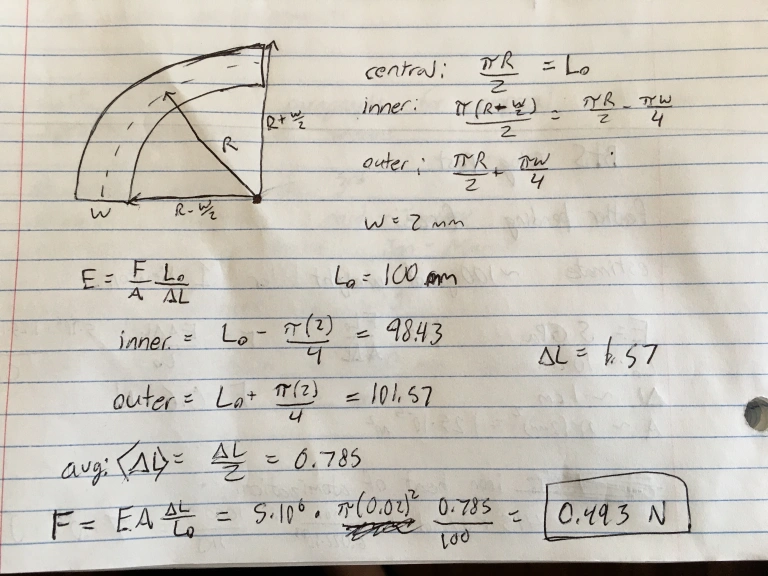 central: πR/2 = L₀
inner: π(R-w/2)/2 = πR/2 - πw/4
R+w/2
R
outer: πR/2 + πw/4
W
R-w/2
w = 2 mm
E = F/A L₀/ΔL
L₀ = 100 mm
inner = L₀ - π(2)/4 = 98.43
ΔL = 1.57
outer = L₀ + π(2)/4 = 101.57
avg: ⟨ΔL⟩ = ΔL/2 = 0.785
F = EA ΔL/L₀ = 5·10⁶ · π(0.02)² 0.785/100 = 0.493 N